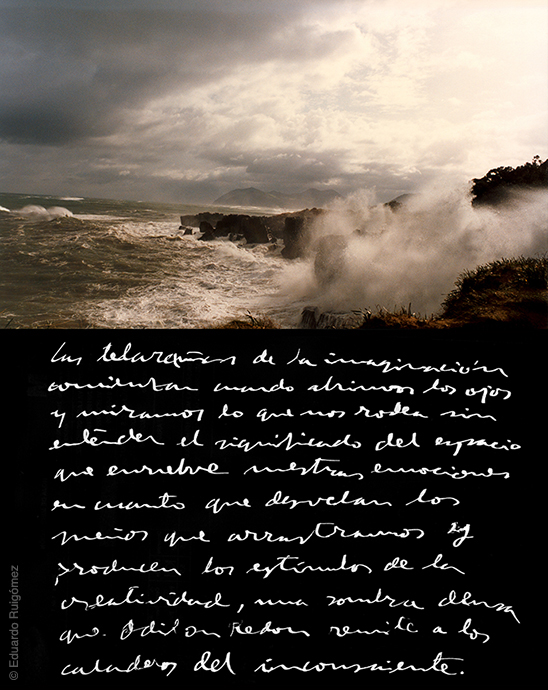 Las telarañas de la imaginación
comienzan cuando abrimos los ojos
y miramos lo que nos rodea sin
entender el significado del espacio
que envuelve nuestras emociones
en cuanto que desvelan los
sueños que arrastramos y
producen los estímulos de la
creatividad, una sombra densa
que Odilon Redon remite a los
caladeros del inconsciente.
© Eduardo Ruigómez